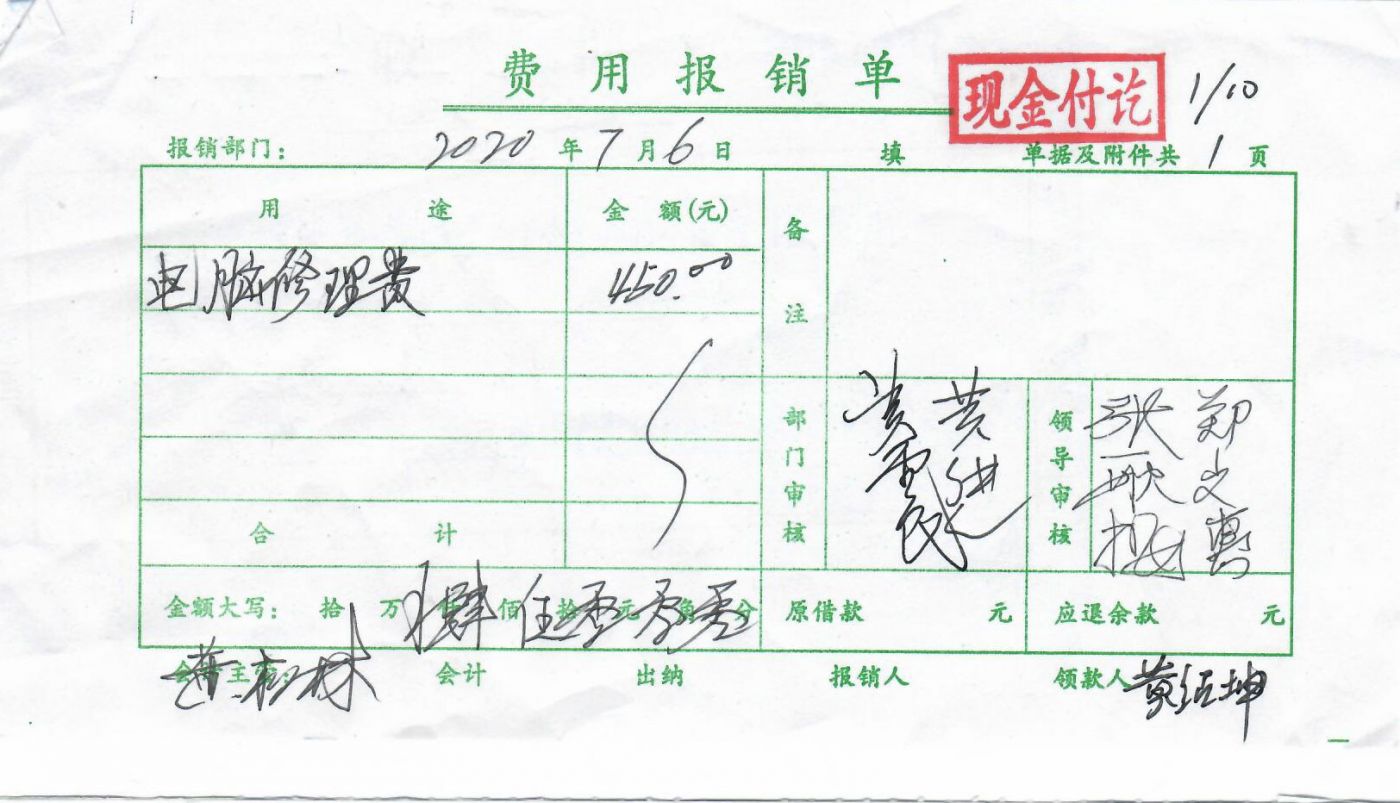 费用报销单
现金付讫 1/10
报销部门： 2020 年 7 月 6 日 填 单据及附件共 1 页
用途 金额(元) 备注
电脑修理费 450.00
部门审核 领导审核
合计
金额大写： 拾 万 仟 肆 佰 伍 拾 零 元 零 角 零 分 原借款 元 应退余款 元
会计主管： 会计 出纳 报销人 领款人